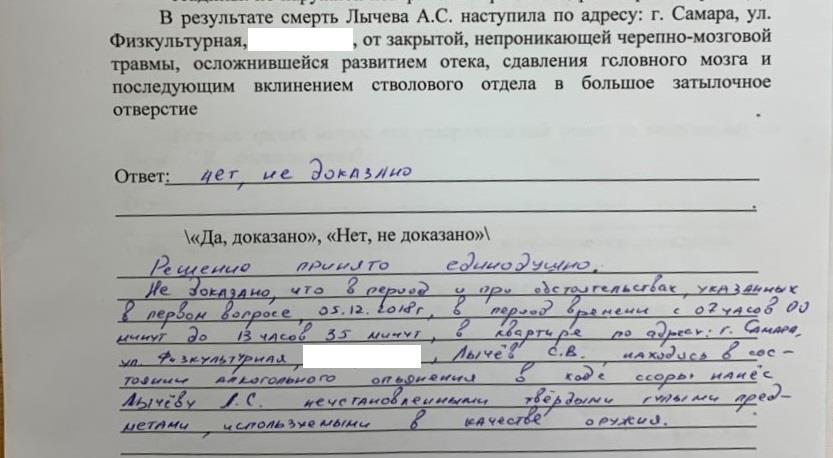 В результате смерть Лычева А.С. наступила по адресу: г. Самара, ул.
Физкультурная, , от закрытой, непроникающей черепно-мозговой
травмы, осложнившейся развитием отека, сдавления головного мозга и
последующим вклинением стволового отдела в большое затылочное
отверстие .
Ответ: нет, не доказано
.
\«Да, доказано», «Нет, не доказано»\
Решение принято единодушно.
Не доказано, что в период и при обстоятельствах, указанных
в первом вопросе, 05.12.2018г, в период времени с 07 часов 00
минут до 13 часов 35 минут, в квартире по адресу: г. Самара,
ул. Физкультурная, , Лычёв С.В., находясь в сос-
тоянии алкогольного опьянения в ходе ссоры нанёс
Лычёву А.С. неустановленными твёрдыми тупыми пред-
метами, используемыми в качестве оружия.